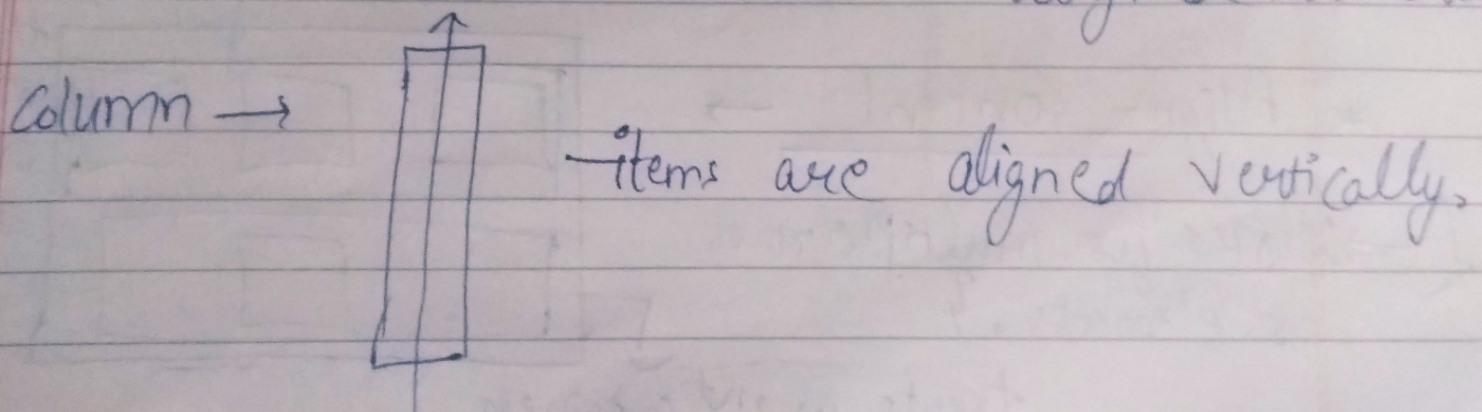 Column →
items are aligned vertically.